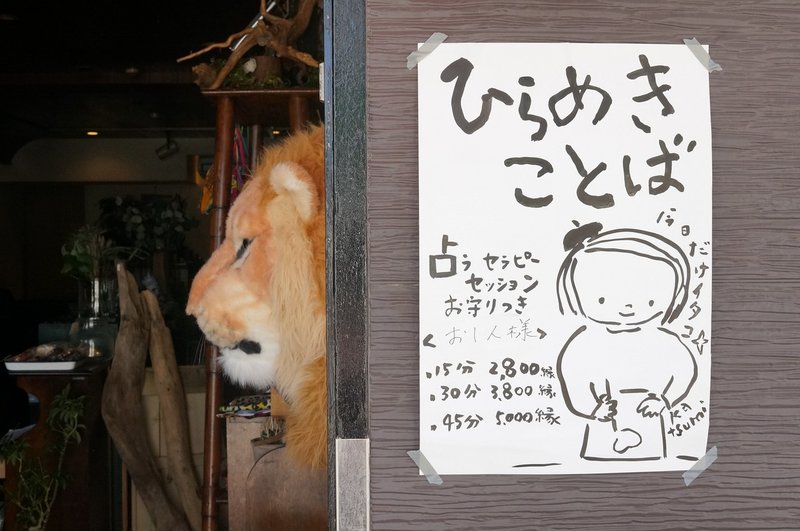 ひらめき
ことば
占う セラピー
セッション
お守りつき
<お1人様>
.15分 2,800縁
.30分 3,800縁
.45分 5,000縁
今日だけイタコ☆